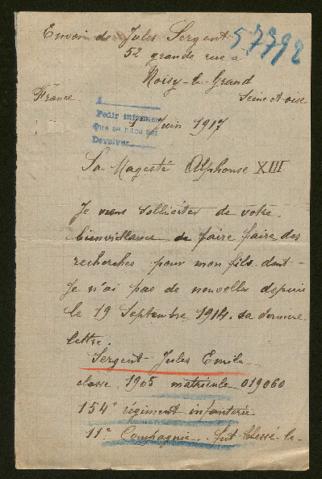 Envoi de Jules Sergent
57792
52 grande rue a
Noisy-le Grand
Seine et oise
France
A
Pedir informes
Devolver
Juin 1917
Sa Magesté Alphonse XIII
Je viens solliciter de votre
bienveillance de faire faire des
recherches pour mon fils dont
Je n'ai pas de nouvelles depuis
le 19 Septembre 1914. sa derniere
lettre.
Sergent Jules Emile
classe 1905 matricule 019060
154e régiment infanterie
11e Compagnie. fut blessé le